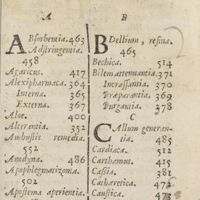 A
ABsorbentia. 463
Adstringentia.
458
Agaricus. 417
Alexipharmaca. 364
Interna. 365
Externa. 367
Aloe. 400
Alterantia. 352
Ambustis remedia.
552
Anodyna. 486
Apophlegmatizonta.
502
Apostema aperientia.
B
BDellium, resina.
465
Bechica. 514
Bilem attenuantia. 371
Incrassantia. 370
Præparantia. 369
Purgantia. 378
C
CAllum generan-
tia. 485
Cardiaca. 512
Carthamus. 415
Cassia. 381
Cathæretica. 472
Caustica. 473